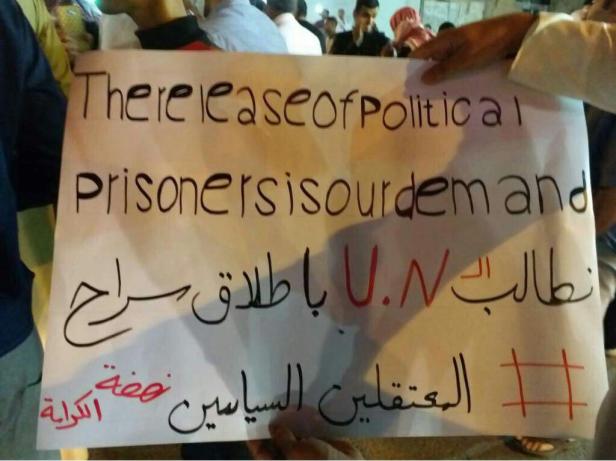 The release of political
prisoners is our demand
نطالب الـ U.N باطلاق سراح
# المعتقلين السياسين
نهضة
الكرامة